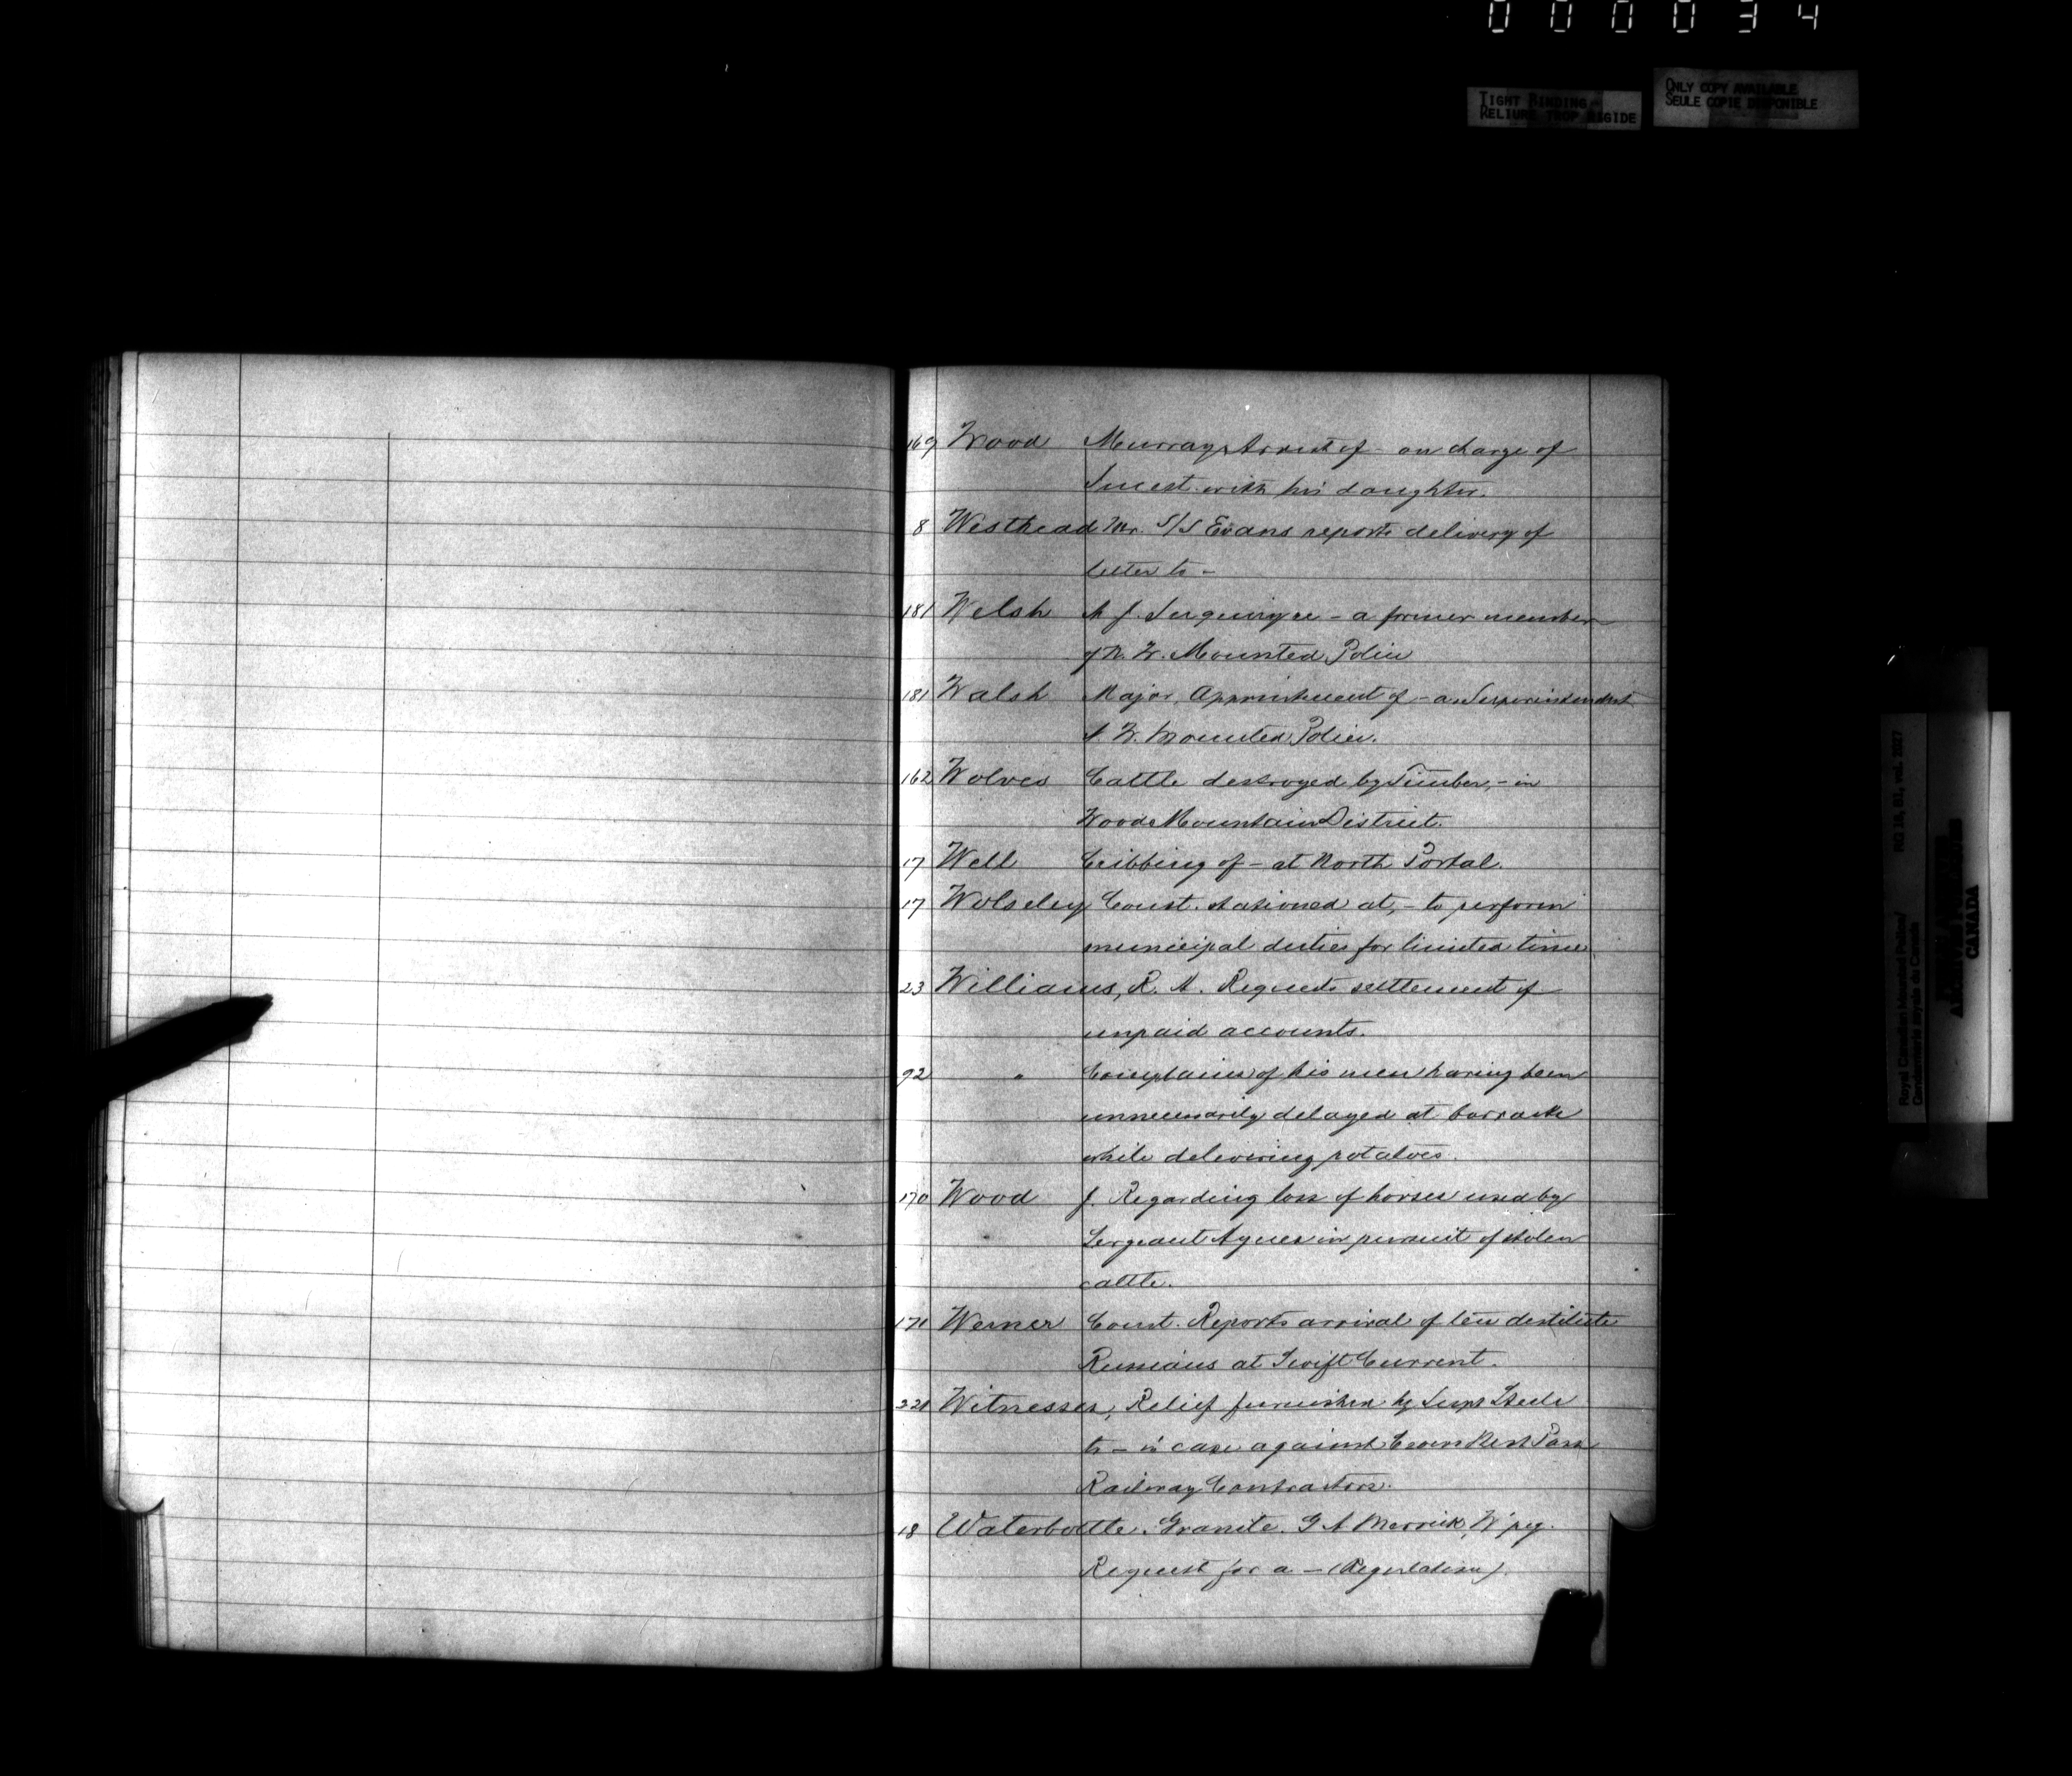 000034
TIGHT BINDING
RELIURE TROP RIGIDE
ONLY COPY AVAILABLE
SEULE COPIE DISPONIBLE
169 Wood Murray Arrest of - on charge of
Incest with his daughter.
8 Westhead Mr. S/S Evans reports delivery of
letter to -
181 Welsh A J. Inquiry re - a former member
of N. W. Mounted Police
181 Walsh Major, Appointment of - as Superintendent
N. W. Mounted Police.
162 Wolves Cattle destroyed by Timber, - in
Wood Mountain District.
17 Well Cribbing of - at North Portal.
17 Wolseley Const. stationed at, - to perform
municipal duties for limited time
23 Williams, R. A. Requests settlement of
unpaid accounts.
92 " Complains of his men having been
unnecessarily delayed at barracks
while delivering potatoes.
170 Wood J. Regarding loss of horses used by
Sergeant in pursuit of stolen
cattle.
171 Werner Const. Reports arrival of ten destitute
Russians at Swift Current.
221 Witnesses, Relief furnished by Supt Steele
to - in case against Crows Nest Pass
Railway Contractors.
18 Waterbottle, Granite. G A Merrick, W'peg.
Request for a - (Regulation)
RG 18, B1, vol. 2027
Royal Canadian Mounted Police/
Gendarmerie royale du Canada
CANADA